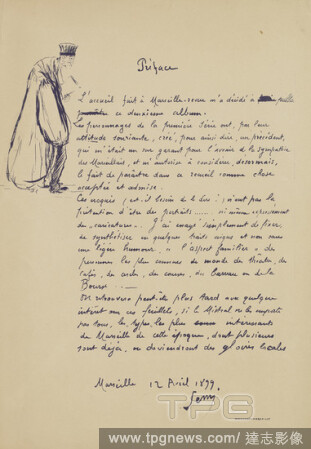 Préface
L'accueil fait à Marseille-revue m'a décidé à
ce deuxième album.
Les personnages de la première Série ont, par leur
attitude souriante, créé, pour ainsi dire, un précédent,
qui m'était un sûr garant pour l'avenir de la sympathie
des Marseillais, et m'autorise à considérer, désormais,
le fait de paraître dans ce recueil comme chose
acceptée et admise.
Ces croquis (est-il besoin de le dire) n'ont pas la
prétention d'être des portraits..... ni même expressément
des caricatures. J'ai essayé simplement de fixer,
de synthétiser en quelques traits aigus et non sans
une légère humour l'aspect familier des
personnes les plus connues du monde du théâtre, des
cafés, des cercles, des courses, du Barreau ou de la
Bourse
On retrouvera peut-être plus tard avec quelque
intérêt sur ces feuillets, si le Mistral ne les emporte
pas tous, les types les plus intéressants
du Marseille de cette époque, dont plusieurs
sont déjà, ou deviendront des gloires locales
Marseille 12 Avril 1899.
Sem
TPG
www.tpgnews.com/達志影像